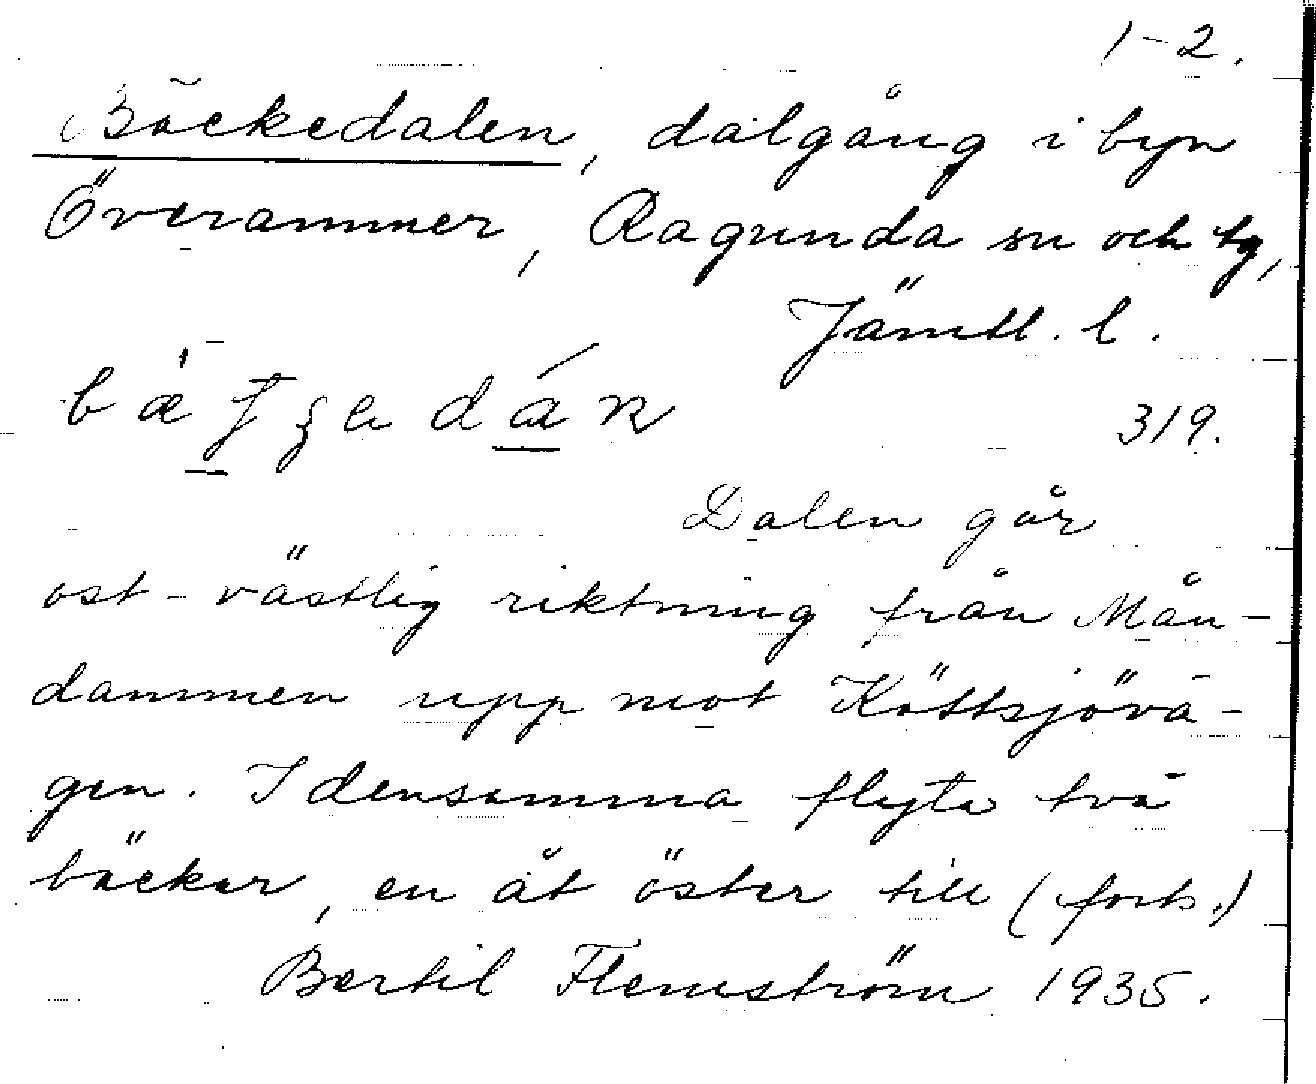 1-2.
Bäckedalen, dalgång i byn
Överammer, Ragunda sn och tg,
Jämtl. l.
319.
Dalen går
ost-västlig riktning från Mån-
dammen upp mot Köttsjövä-
gen. I densamma flyta två
bäckar, en åt öster till (forts.)
Bertil Flemström 1935.